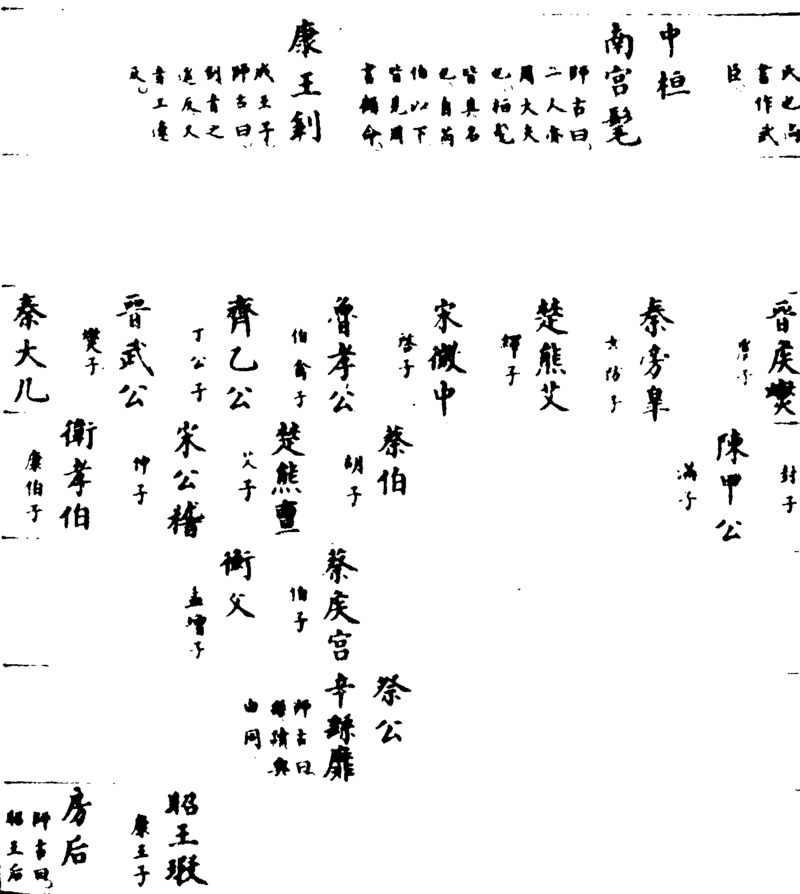 氏也尚
書作武
臣
中桓
南宮髦
師古曰
二人亦
周大夫
也桓髦
皆其名
也自芮
伯以下
皆見周
書顧命
康王釗
成王子
師古曰
釗音之
遙反又
音工遼
反
晉侯燮
虞子
秦旁皋
女防子
楚熊艾
繹子
宋微中
啓子
魯孝公
伯禽子
齊乙公
丁公子
晉武公
燮子
秦大几
封子
陳甲公
滿子
蔡伯
胡子
楚熊亶
艾子
宋公稽
仲子
衛孝伯
康伯子
蔡侯宮
伯子
衡父
孟增子
祭公
辛繇靡
師古曰
繇讀與
由同
昭王瑕
康王子
房后
師古曰
昭王后